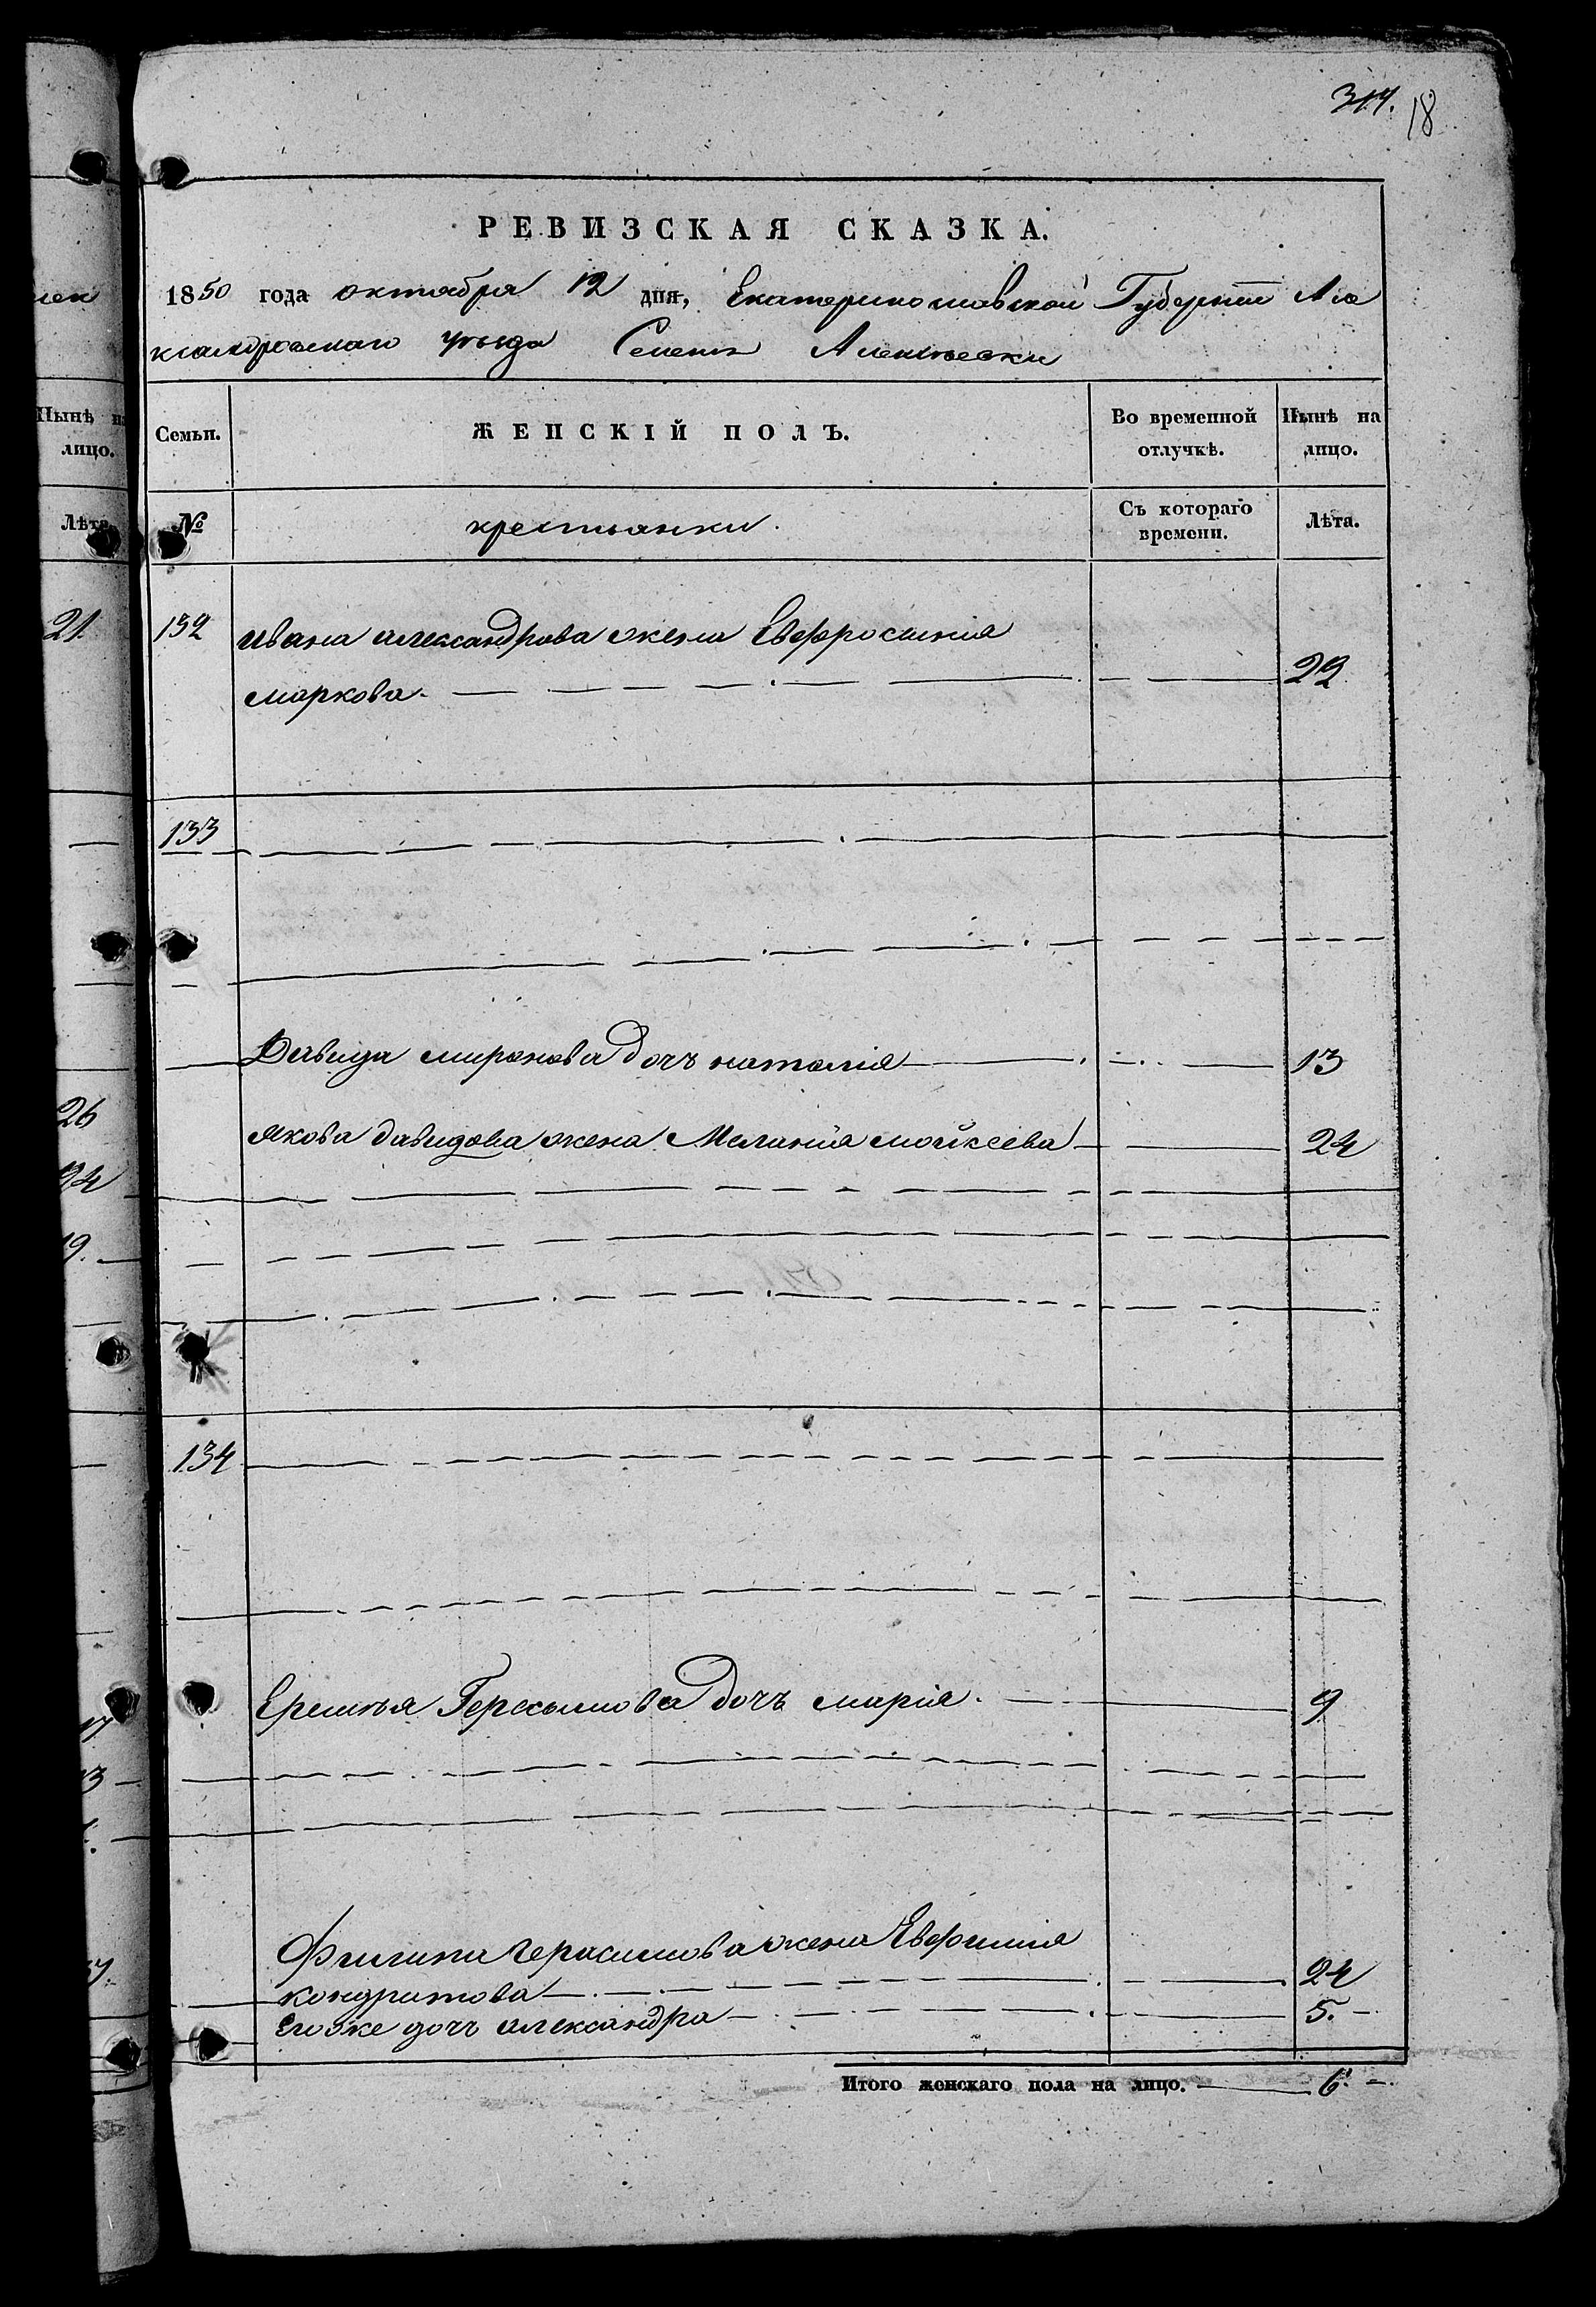 317. 18
РЕВИЗСКАЯ СКАЗКА.
1850 года октября 12 дня, Екатеринославской Губернии Але
ксандровскаго уезда Алексеевки
Семьи.
ЖЕНСКІЙ ПОЛЪ.
Во временной отлучкѣ.
Нынѣ на лицо.
№
крестьянки.
Съ котораго времени.
Лѣта.
132 ивана александрова жена Евфросиния
маркова. 22
133
Давида миронова дочь наталия 13
якова давидова жена Мелания мойсеева 24
134
Еремея Герасимова дочь мария. 9
Филипа герасимова жена Евфимия
кондратова 24
Его же дочь александра 5.
Итого женскаго пола на лицо. 6.
Нынѣ на
лицо.
Лѣта.
21.
26
24
19.